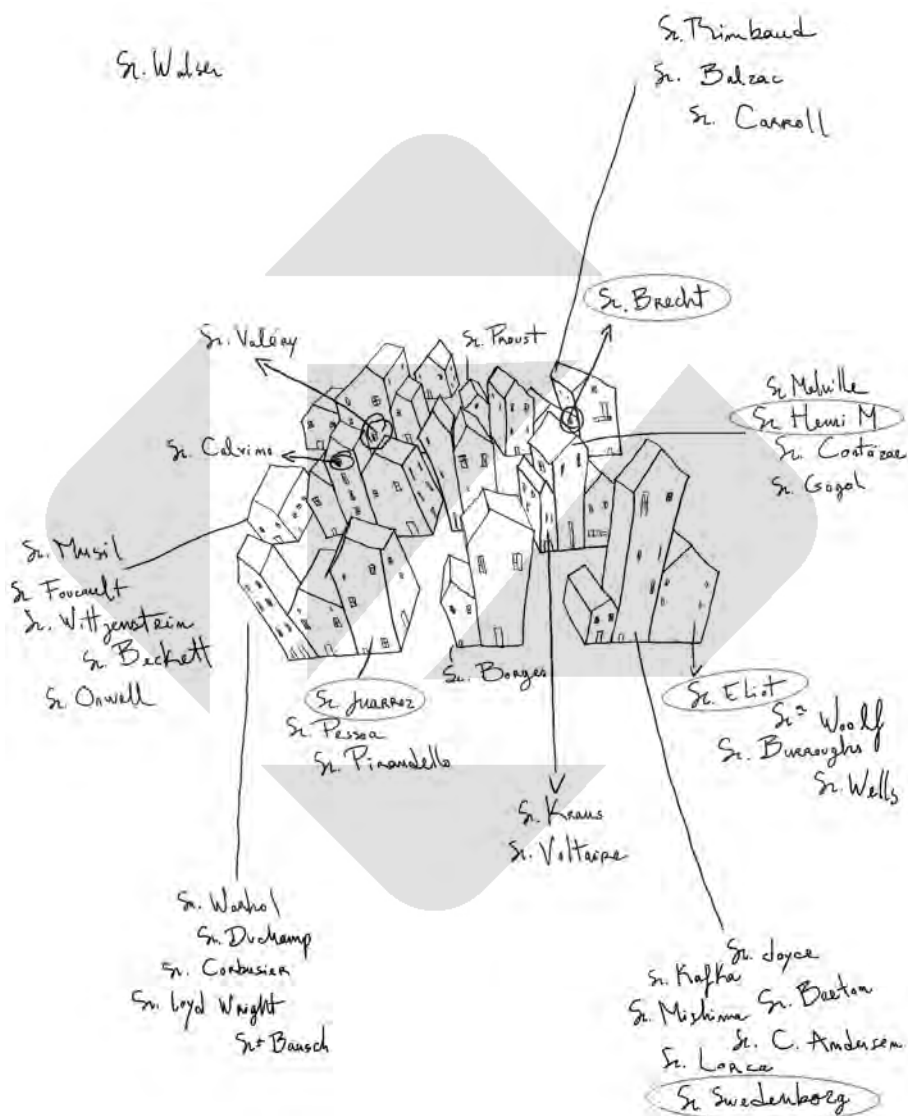 Sr. Walser
Sr. Rimbaud
Sr. Balzac
Sr. Carroll
Sr. Brecht
Sr. Valéry
Sr. Proust
Sr. Calvino
Sr. Melville
Sr. Henri M
Sr. Cortázar
Sr. Gogol
Sr. Musil
Sr. Foucault
Sr. Wittgenstein
Sr. Beckett
Sr. Orwell
Sr. Juarroz
Sr. Pessoa
Sr. Pirandello
Sr. Borges
Sr. Eliot
Srª Woolf
Sr. Burroughs
Sr. Wells
Sr. Kraus
Sr. Voltaire
Sr. Warhol
Sr. Duchamp
Sr. Corbusier
Sr. Loyd Wright
Srª Bausch
Sr. Joyce
Sr. Kafka
Sr. Mishima Sr. Breton
Sr. C. Andersen
Sr. Lorca
Sr. Swedenborg